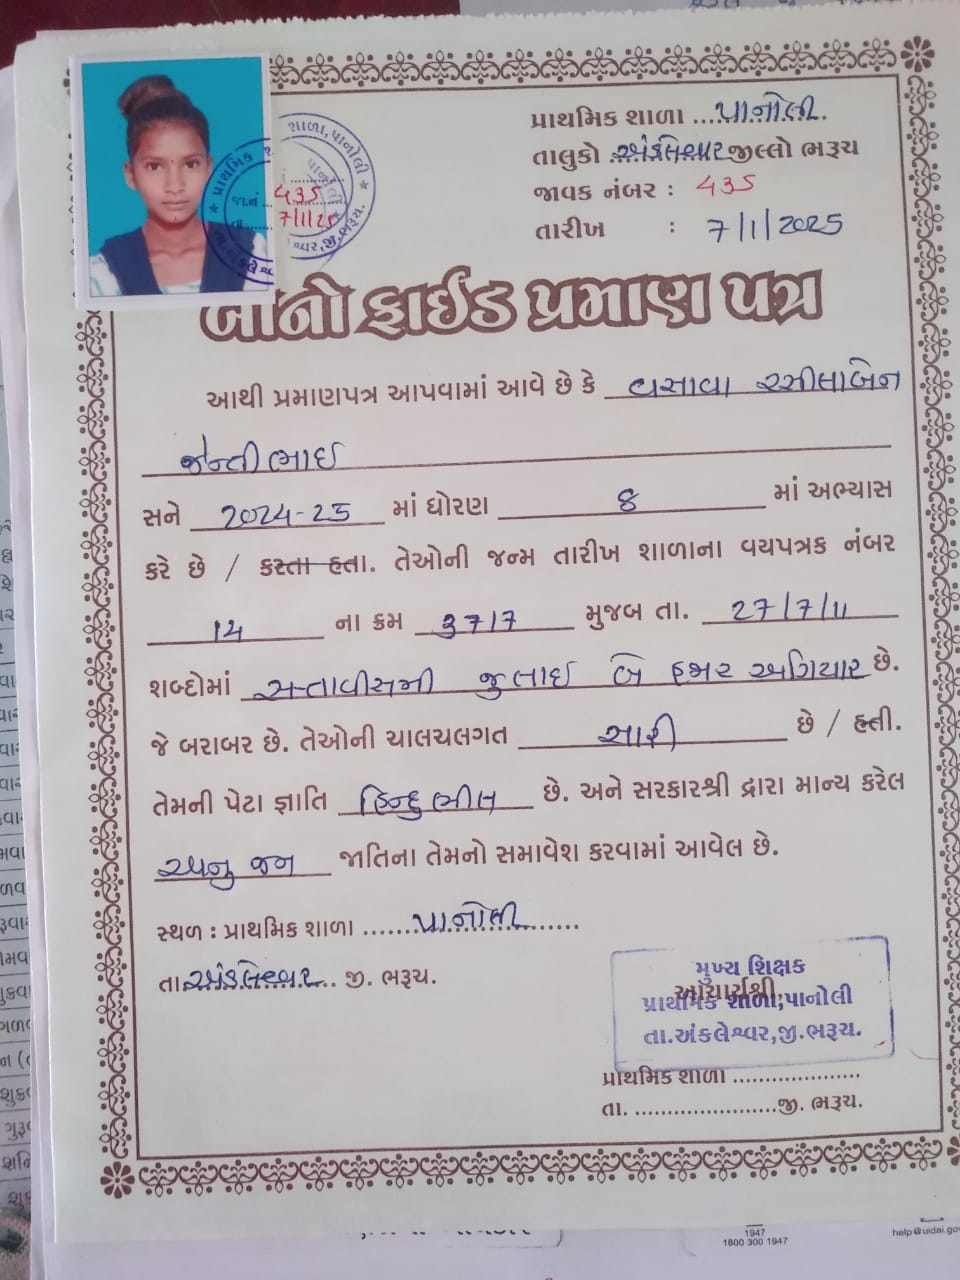 પ્રાથમિક શાળા ...પાનોલી.
તાલુકો અંકલેશ્વર જીલ્લો ભરૂચ
જાવક નંબર : 435
તારીખ : 7/1/2025
435
7/1/25
બોનોફાઈડ પ્રમાણ પત્ર
આથી પ્રમાણપત્ર આપવામાં આવે છે કે વસાવા રસીલાબેન
જેન્તીભાઈ
સને 2024-25 માં ધોરણ 8 માં અભ્યાસ
કરે છે / કરતા હતા. તેઓની જન્મ તારીખ શાળાના વયપત્રક નંબર
14 ના ક્રમ 3717 મુજબ તા. 27/7/11
શબ્દોમાં સત્તાવીસમી જુલાઈ બે હજાર અગિયાર છે.
જે બરાબર છે. તેઓની ચાલચલગત સારી છે / હતી.
તેમની પેટા જ્ઞાતિ હિન્દુ ભીલ છે. અને સરકારશ્રી દ્વારા માન્ય કરેલ
અનુ જન જાતિના તેમનો સમાવેશ કરવામાં આવેલ છે.
સ્થળ : પ્રાથમિક શાળા ......પાનોલી.......
તા.અંકલેશ્વર.. જી. ભરૂચ.
મુખ્ય શિક્ષક
આચાર્યશ્રી
પ્રાથમિક શાળા,પાનોલી
તા.અંકલેશ્વર,જી.ભરૂચ.
પ્રાથમિક શાળા ...................
તા. ......................જી. ભરૂચ.
1947
1800 300 1947
help@uidai.go